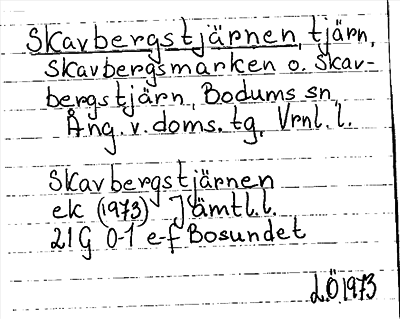 Skavbergstjärnen, tjärn,
Skavbergsmarken o. Skav-
bergstjärn, Bodums sn,
Ång. v. doms. tg, Vrnl. l.
Skavbergstjärnen
ek (1973) Jämtl.l.
21G 0-1 e-f Bosundet
LÖ1973